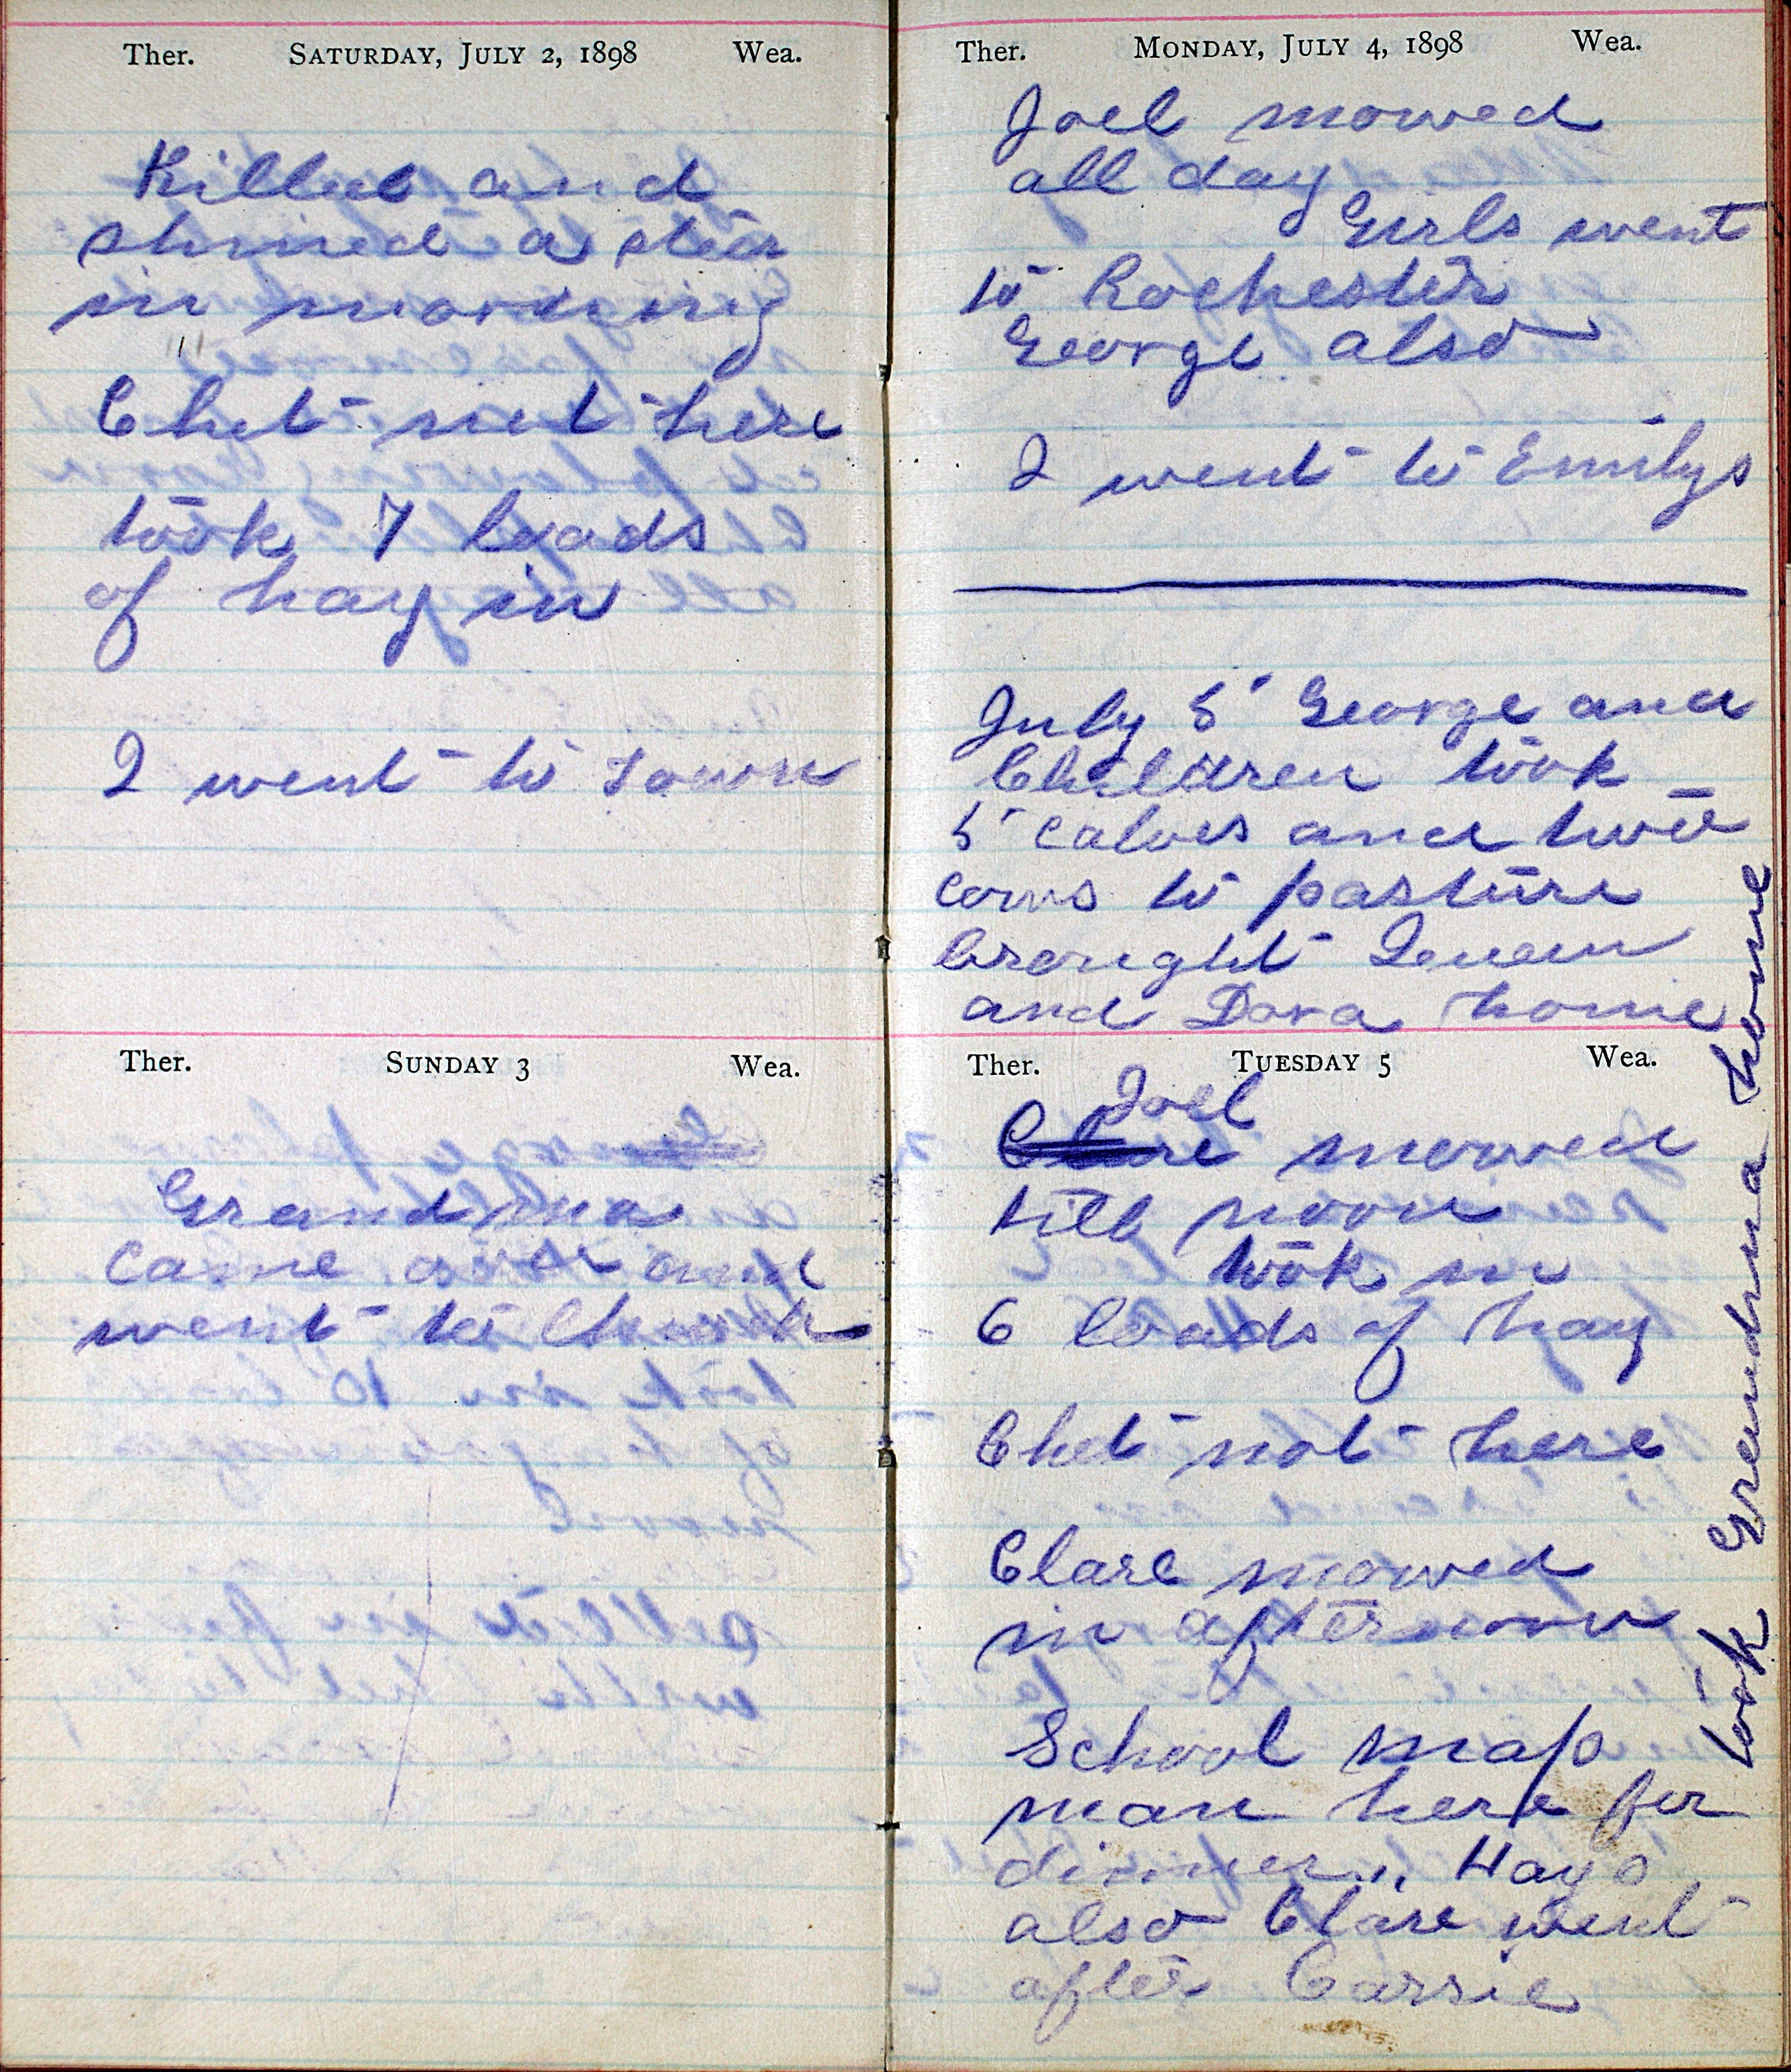 Ther. SATURDAY, JULY 2, 1898 Wea.
Killed and
skined a steer
in morning
Chet not here
took 7 loads
of hay in
I went to town
Ther. SUNDAY 3 Wea.
Grandma
came over and
went to Church
Ther. MONDAY, JULY 4, 1898 Wea.
Joel mowed
all day
Girls went
to Rochester
George also
I went to Emilys
July 5 George and
Children took
5 calves and two
cows to pasture
brought Queen
and Dora home
Ther. TUESDAY 5 Wea.
Joel
Clare mowed
till noon
took in
6 loads of hay
Chet not here
Clare mowed
in afternoon
School map
man here for
dinner,, Hays
also Clare went
after Carrie
took Grandma home